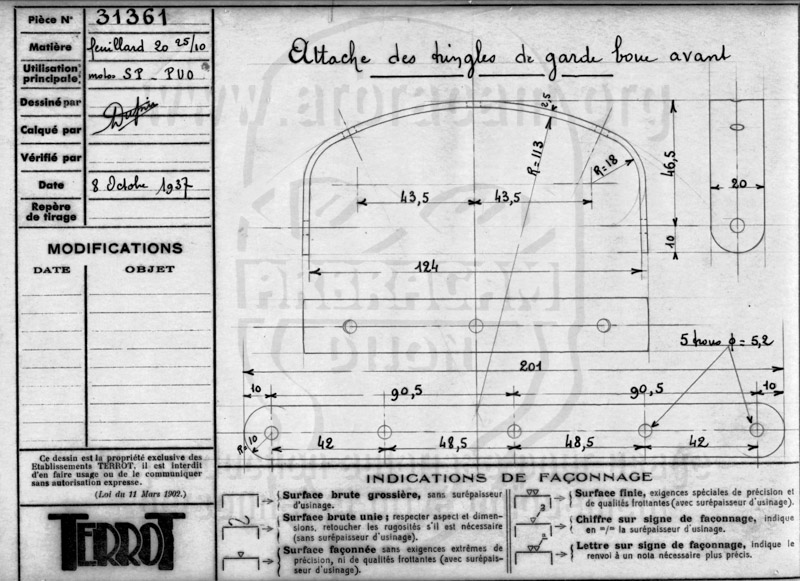 Pièce N° 31361
Matière feuillard 20 25/10
Utilisation principale motos SP - PUO
Dessiné par
Calqué par
Vérifié par
Date 8 Octobre 1937
Repère de tirage
MODIFICATIONS
DATE OBJET
Ce dessin est la propriété exclusive des
Etablissements TERROT, il est interdit
d'en faire usage ou de le communiquer
sans autorisation expresse.
(Loi du 11 Mars 1902.)
TERROT
Attache des tringles de garde boue avant
25
R=113
R=18
43,5 43,5
46,5
10
20
124
5 trous ϕ = 5,2
201
10 90,5 90,5 10
R=10 42 48,5 48,5 42
INDICATIONS DE FAÇONNAGE
Surface brute grossière, sans surépaisseur
d'usinage.
Surface brute unie ; respecter aspect et dimen-
sions, retoucher les rugosités s'il est nécessaire
(sans surépaisseur d'usinage).
Surface façonnée sans exigences extrêmes de
précision, ni de qualités frottantes (avec surépais-
seur d'usinage).
Surface finie, exigences spéciales de précision et
de qualités frottantes (avec surépaisseur d'usinage).
Chiffre sur signe de façonnage, indique
en m/m la surépaisseur d'usinage.
Lettre sur signe de façonnage, indique le
renvoi à un nota nécessaire plus précis.
www.arbracam.org
ARBRACAM
DIJON